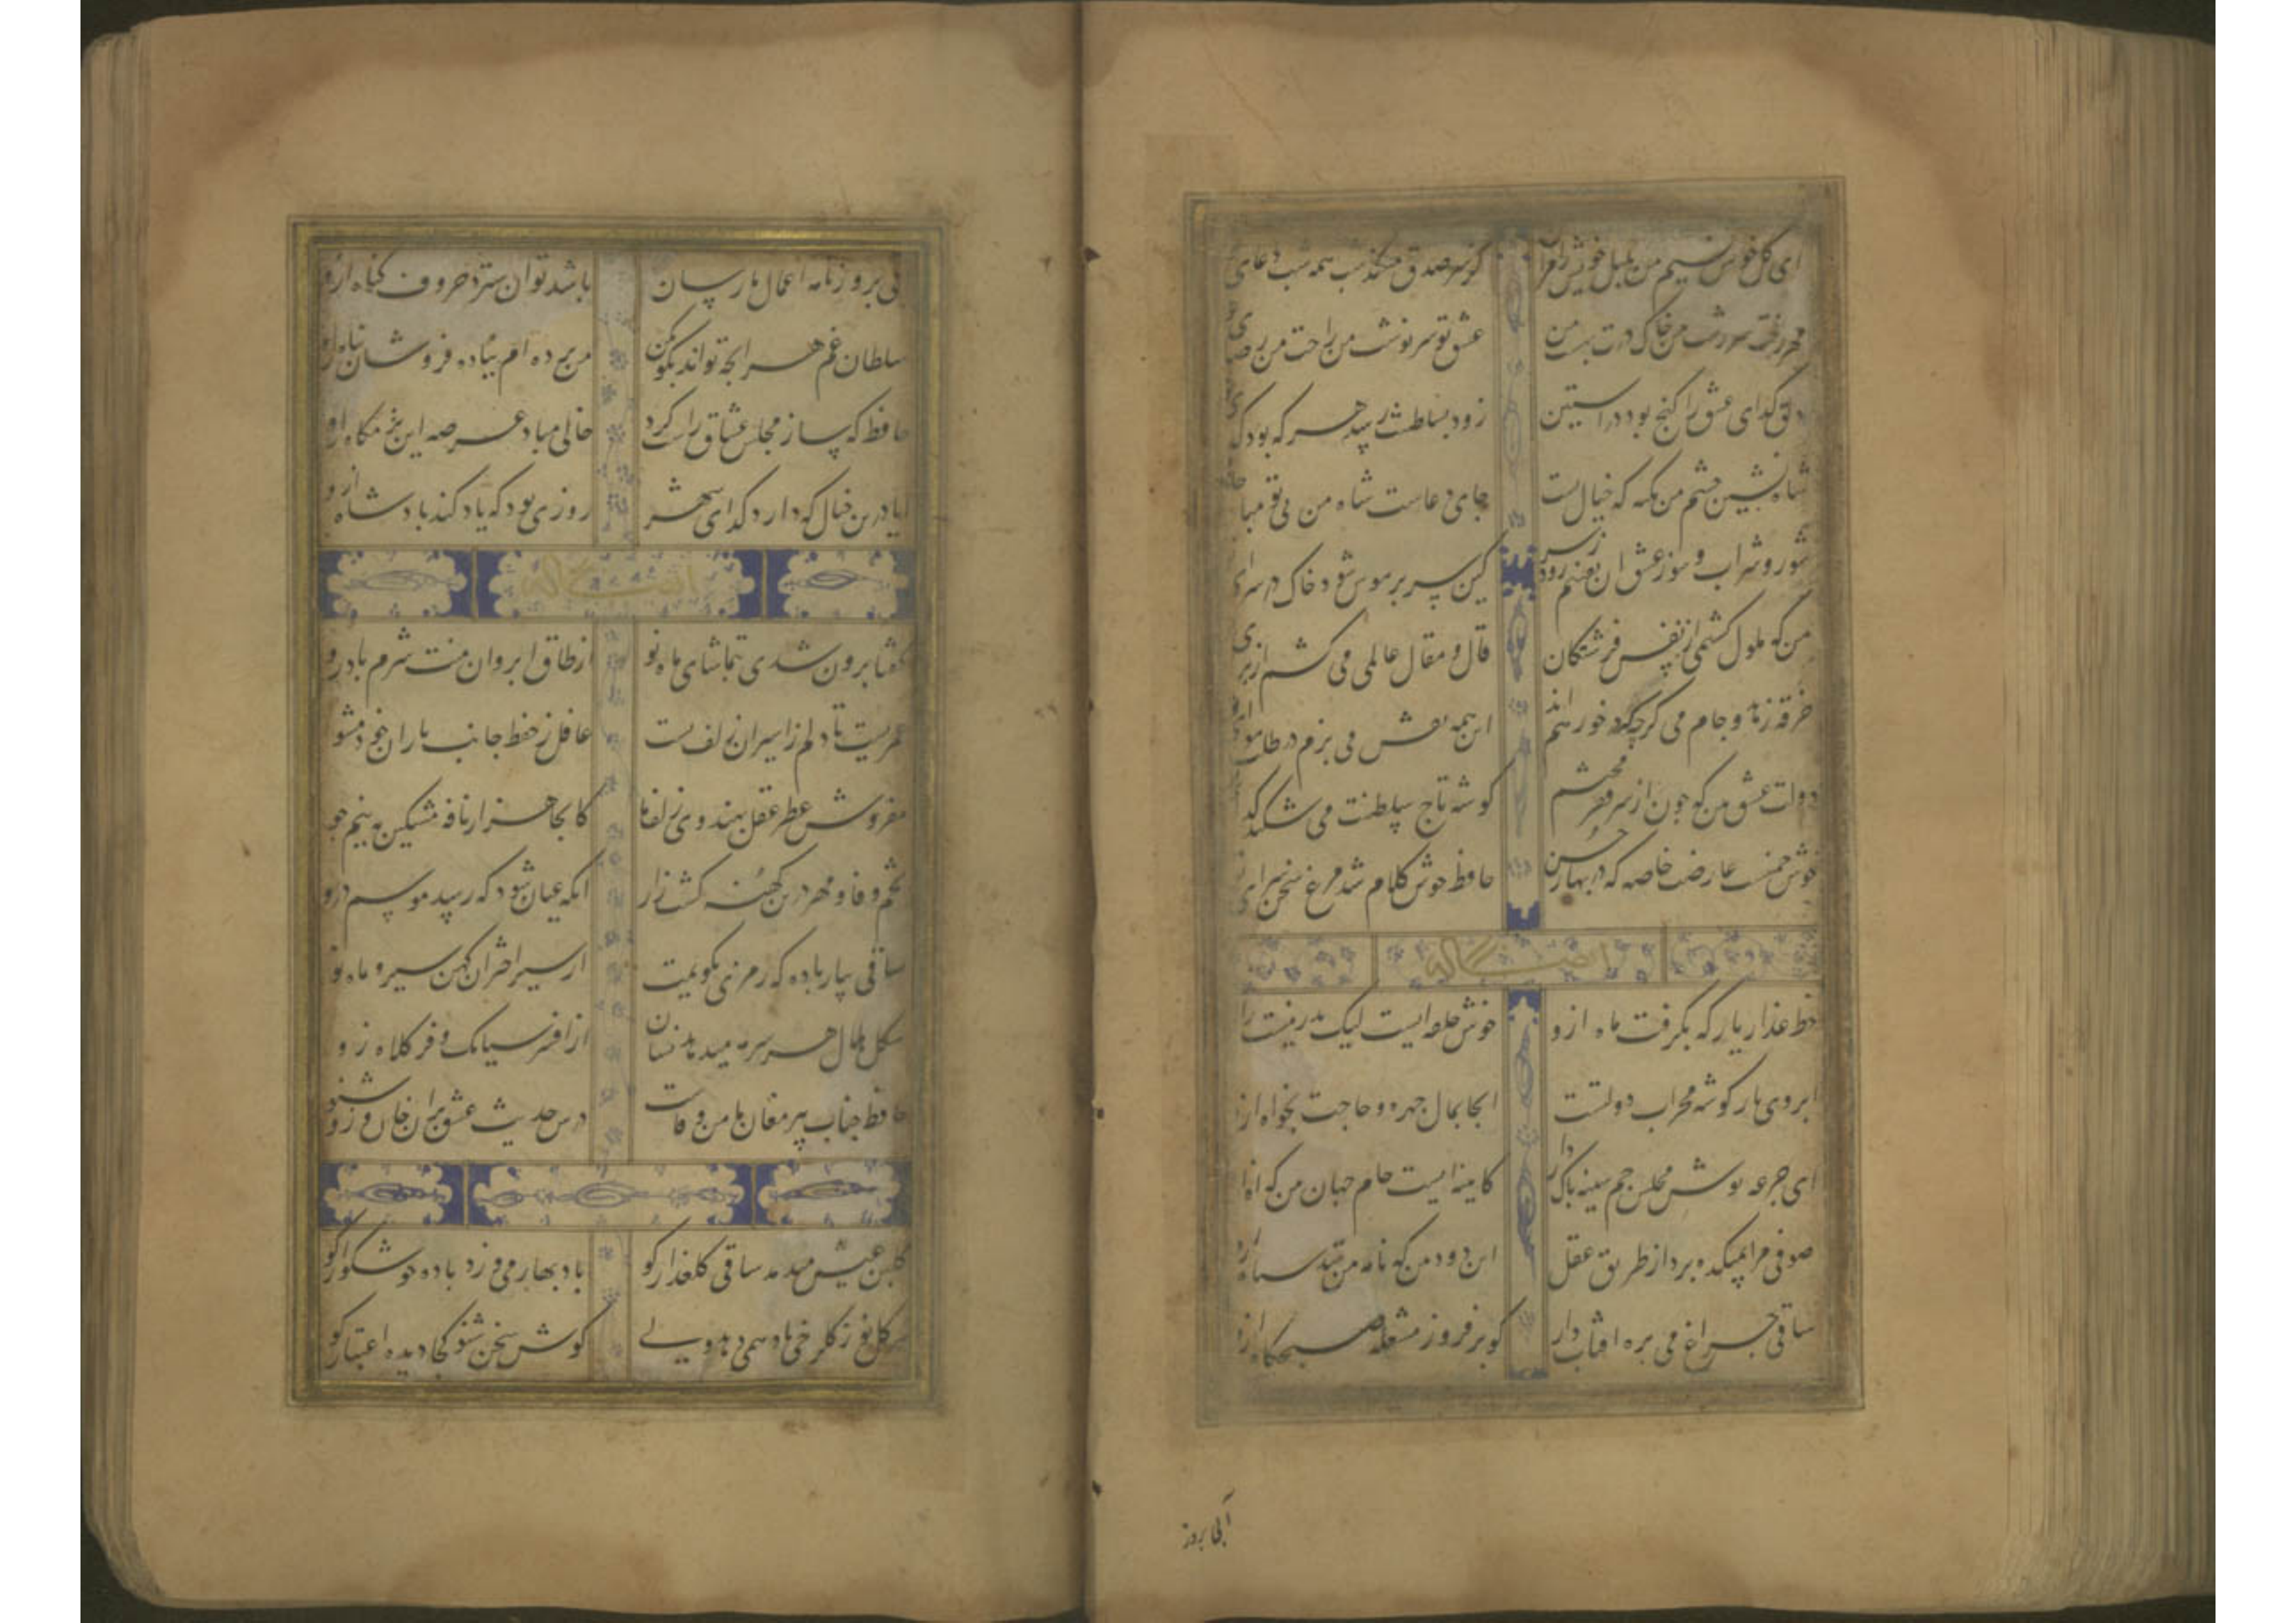 ای گل خوش نسیم من بلبل خویش را مسوز کز سر صدق میکند شب همه شب دعای
مهر رخت سرشت من خاک درت بهشت من عشق تو سرنوشت من راحت من رضای
دلق گدای عشق را گنج بود در آستین زود بسلطنت رسد هر که بود گدای
شاه نشین چشم من تکیه که خیال تست جای دعاست شاه من بی تو مباد جای
شور شراب و سوز عشق آن نفسم رود ز سر کین سر پر هوس شود خاک در سرای
من که ملول گشتمی از نفس فرشتگان قال و مقال عالمی می کشم از برای
خرقه زهد و جام می گرچه نه در خور همند این همه نقش می زنم در طلب هوای
دولت عشق بین که چون از سر فقر محتشم گوشه تاج سلطنت می شکند گدای
خوش چمنیست عارضت خاصه که در بهار حسن حافظ خوش کلام شد مرغ سخن سرای
خط عذار یار که بگرفت ماه ازو خوش حلقه ایست لیک بدر نیست راه
ابروی یار گوشه محراب دولتست آنجا بمال چهره و حاجت بخواه ازو
ای جرعه نوش مجلس جم سینه پاک دار کاینه ایست جام جهان بین که آه ازو
صوفی مرا بمیکده برد از طریق عقل این دود بین که نامه من شد سیاه ازو
ساقی چراغ می بره آفتاب دار گو برفروز مشعله صبحگاه ازو
آبی بروز
آبی بروزنامه اعمال ما رسان باشد توان سترد حروف گناه ازو
سلطان غم هر آنچه تواند بگو بکن من برده ام بباده فروشان پناه ازو
حافظ که ساز مجلس عشاق راست کرد خالی مباد عرصه این بزمگاه ازو
آیا درین خیال که دارد گدای شهر روزی بود که یاد کند پادشاه ازو
گفتا برون شدی بتماشای ماه نو از طاق ابروان منت شرم باد رو
عمریست تا دلم ز اسیران زلف تست غافل ز حفظ جانب یاران خود مشو
مفروش عطر عقل بهندوی زلف ما کانجا هزار نافه مشکین به نیم جو
تخم وفا و مهر درین کهنه کشت زار آنگه عیان شود که رسید موسم درو
ساقی بیار باده که رمزی بگویمت از سیر اختران کهن سیر و ماه نو
شکل هلال هر سر مه میدهد نشان از افسر سیامک و فر کلاه زو
حافظ جناب پیر مغان مامن وفاست درس حدیث عشق بران خوان وزو شنو
گلبن عیش میدمد ساقی گلعذار کو باد بهار می وزد باده خوشگوار کو
هر گل نو ز گلرخی یاد همی دهد ولی گوش سخن شنو کجا دیده اعتبار کو